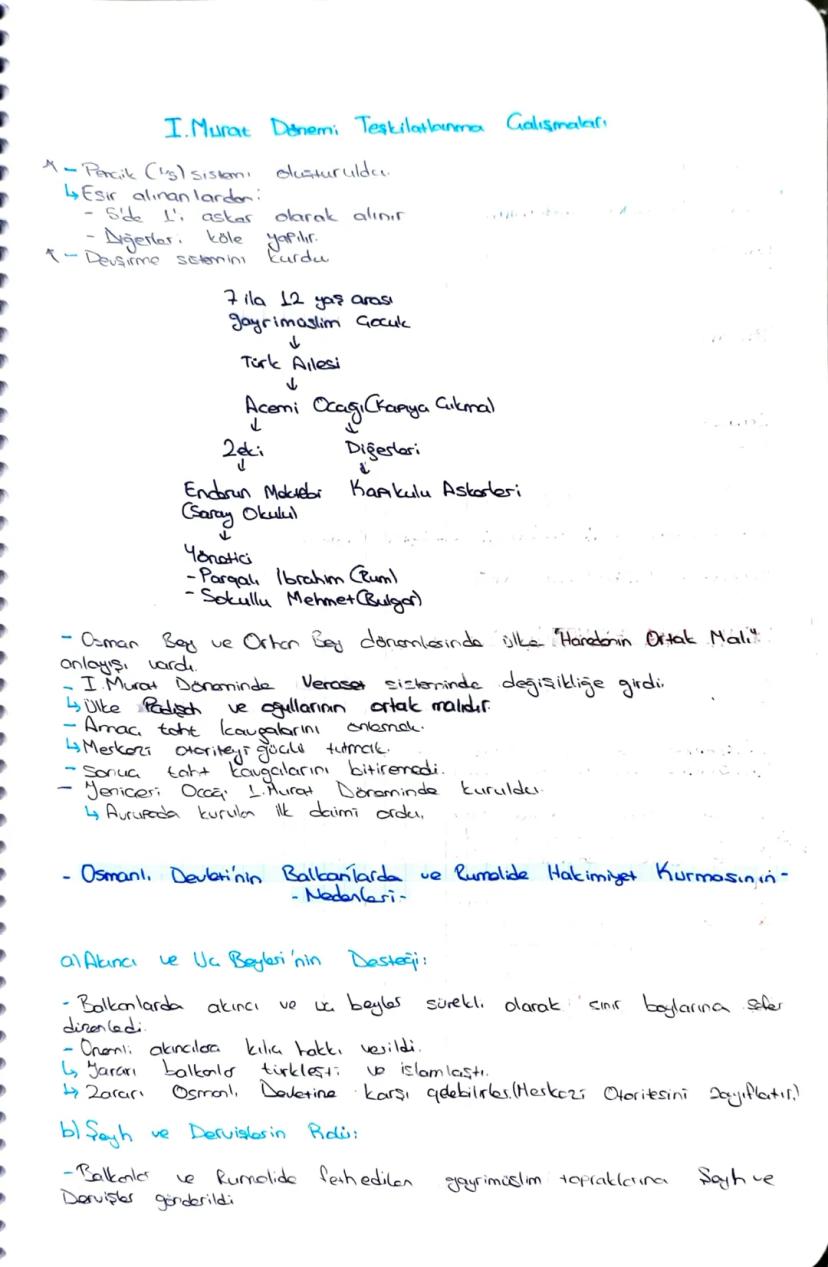 I. Murat Dönemi Teşkilatlanma Çalışmaları
- Pencik (1/5) sistemi oluşturuldu.
↳ Esir alınanlardan:
- 5'de 1'i asker olarak alınır
- Diğerleri köle yapılır.
- Devşirme sistemini kurdu
7 ila 12 yaş arası
gayrimüslim Çocuk
↓
Türk Ailesi
↓
Acemi Ocağı (Kapıya Çıkma)
↓ ↓
Zeki Diğerleri
↓ ↓
Enderun Mektebi Kapıkulu Askerleri
(Saray Okulu)
↓
Yönetici
- Pargalı İbrahim (Rum)
- Sokullu Mehmet (Bulgar)
- Osman Bey ve Orhan Bey dönemlerinde ülke "Hanedanın Ortak Malı"
anlayışı vardı.
- I. Murat Döneminde Veraset sisteminde değişikliğe girdi.
↳ Ülke Padişah ve oğullarının ortak malıdır.
- Amaç taht kavgalarını önlemek.
↳ Merkezi otoriteyi güçlü tutmak.
- Sonuç taht kavgalarını bitiremedi.
- Yeniçeri Ocağı I. Murat Döneminde kuruldu.
↳ Avrupada kurulan ilk daimi ordu.
- Osmanlı Devleti'nin Balkanlarda ve Rumelide Hakimiyet Kurmasının -
- Nedenleri -
a) Akıncı ve Uc Beyleri'nin Desteği:
- Balkanlarda akıncı ve uc beyler sürekli olarak sınır boylarına sefer
düzenledi.
- Önemli akıncılara kılıç hakkı verildi.
↳ Yararı balkanlar türkleşti ve islamlaştı.
↳ Zararı Osmanlı Devletine karşı gelebilirler. (Merkezi Otoritesini Zayıflatır.)
b) Şeyh ve Dervişlerin Rolü:
- Balkanlar ve Rumelide fethedilen gayrimüslim topraklarına Şeyh ve
Dervişler gönderildi